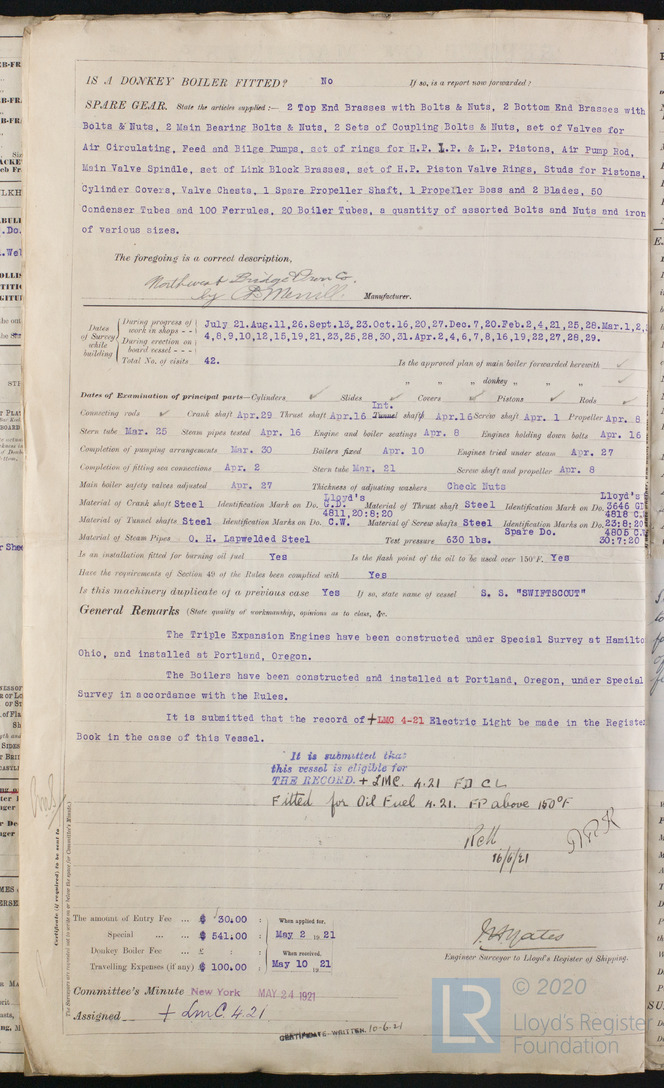 IS A DONKEY BOILER FITTED? No If so, is a report now forwarded?
SPARE GEAR. State the articles supplied:— 2 Top End Brasses with Bolts & Nuts, 2 Bottom End Brasses with
Bolts & Nuts, 2 Main Bearing Bolts & Nuts, 2 Sets of Coupling Bolts & Nuts, set of Valves for
Air Circulating, Feed and Bilge Pumps, set of rings for H.P. I.P. & L.P. Pistons, Air Pump Rod,
Main Valve Spindle, set of Link Block Brasses, set of H.P. Piston Valve Rings, Studs for Pistons,
Cylinder Covers, Valve Chests, 1 Spare Propeller Shaft, 1 Propeller Boss and 2 Blades, 50
Condenser Tubes and 100 Ferrules, 20 Boiler Tubes, a quantity of assorted Bolts and Nuts and iron
of various sizes.
The foregoing is a correct description,
Northwest Bridge & Iron Co.
by Merrill. Manufacturer.
Dates of Survey while building
During progress of work in shops - - July 21.Aug.11,26.Sept.13,23.Oct.16,20,27.Dec.7,20.Feb.2,4,21,25,28.Mar.1,2,
During erection on board vessel - - - 4,8,9,10,12,15,19,21,23,25,28,30,31.Apr.2,4,6,7,8,16,19,22,27,28,29.
Total No. of visits 42. Is the approved plan of main boiler forwarded herewith ✓
" " " donkey " " ✓
Dates of Examination of principal parts—Cylinders ✓ Slides ✓ Covers ✓ Pistons ✓ Rods ✓
Int.
Connecting rods ✓ Crank shaft Apr.29 Thrust shaft Apr.16 Tunnel shaft Apr.16 Screw shaft Apr. 1 Propeller Apr. 8
Stern tube Mar. 25 Steam pipes tested Apr. 16 Engine and boiler seatings Apr. 8 Engines holding down bolts Apr. 16
Completion of pumping arrangements Mar. 30 Boilers fixed Apr. 10 Engines tried under steam Apr. 27
Completion of fitting sea connections Apr. 2 Stern tube Mar. 21 Screw shaft and propeller Apr. 8
Main boiler safety valves adjusted Apr. 27 Thickness of adjusting washers Check Nuts
Lloyd's Lloyd's
Material of Crank shaft Steel Identification Mark on Do. G.D. Material of Thrust shaft Steel Identification Mark on Do. 3646
4811,20:8:20 4818
Material of Tunnel shafts Steel Identification Marks on Do. C.W. Material of Screw shafts Steel Identification Marks on Do. 23:8:20
Spare Do. 4805
Material of Steam Pipes O. H. Lapwelded Steel Test pressure 630 lbs. 30:7:20
Is an installation fitted for burning oil fuel Yes Is the flash point of the oil to be used over 150°F. Yes
Have the requirements of Section 49 of the Rules been complied with Yes
Is this machinery duplicate of a previous case Yes If so, state name of vessel S. S. "SWIFTSCOUT"
General Remarks (State quality of workmanship, opinions as to class, &c.
The Triple Expansion Engines have been constructed under Special Survey at Hamilto
Ohio, and installed at Portland, Oregon.
The Boilers have been constructed and installed at Portland, Oregon, under Special
Survey in accordance with the Rules.
It is submitted that the record of +LMC 4-21 Electric Light be made in the Register
Book in the case of this Vessel.
It is submitted that
this vessel is eligible for
THE RECORD. + LMC. 4.21 FD CL
Fitted for Oil Fuel 4.21. FP above 150°F
16/6/21
Certificate (if required) to be sent to
The amount of Entry Fee ... $ 30.00 : When applied for,
Special ... ... $ 541.00 : May 2 19 21
Donkey Boiler Fee ... £ : : When received,
Travelling Expenses (if any) $ 100.00 : May 10 19 21
J. H. Yates
Engineer Surveyor to Lloyd's Register of Shipping.
Committee's Minute New York MAY 24 1921
Assigned + LMC 4.21
CERTIFICATE WRITTEN. 10-6-21
LR © 2020
Lloyd's Register
Foundation